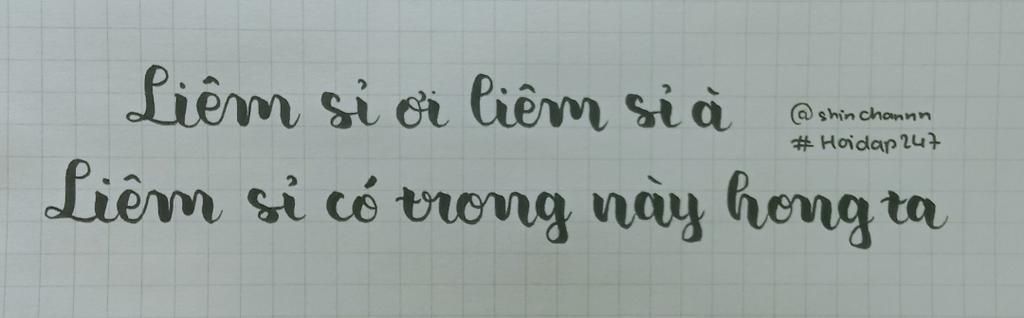 Liêm sỉ ơi liêm sỉ à
@shinchannn
#Hoidap247
Liêm sỉ có trong này hong ta